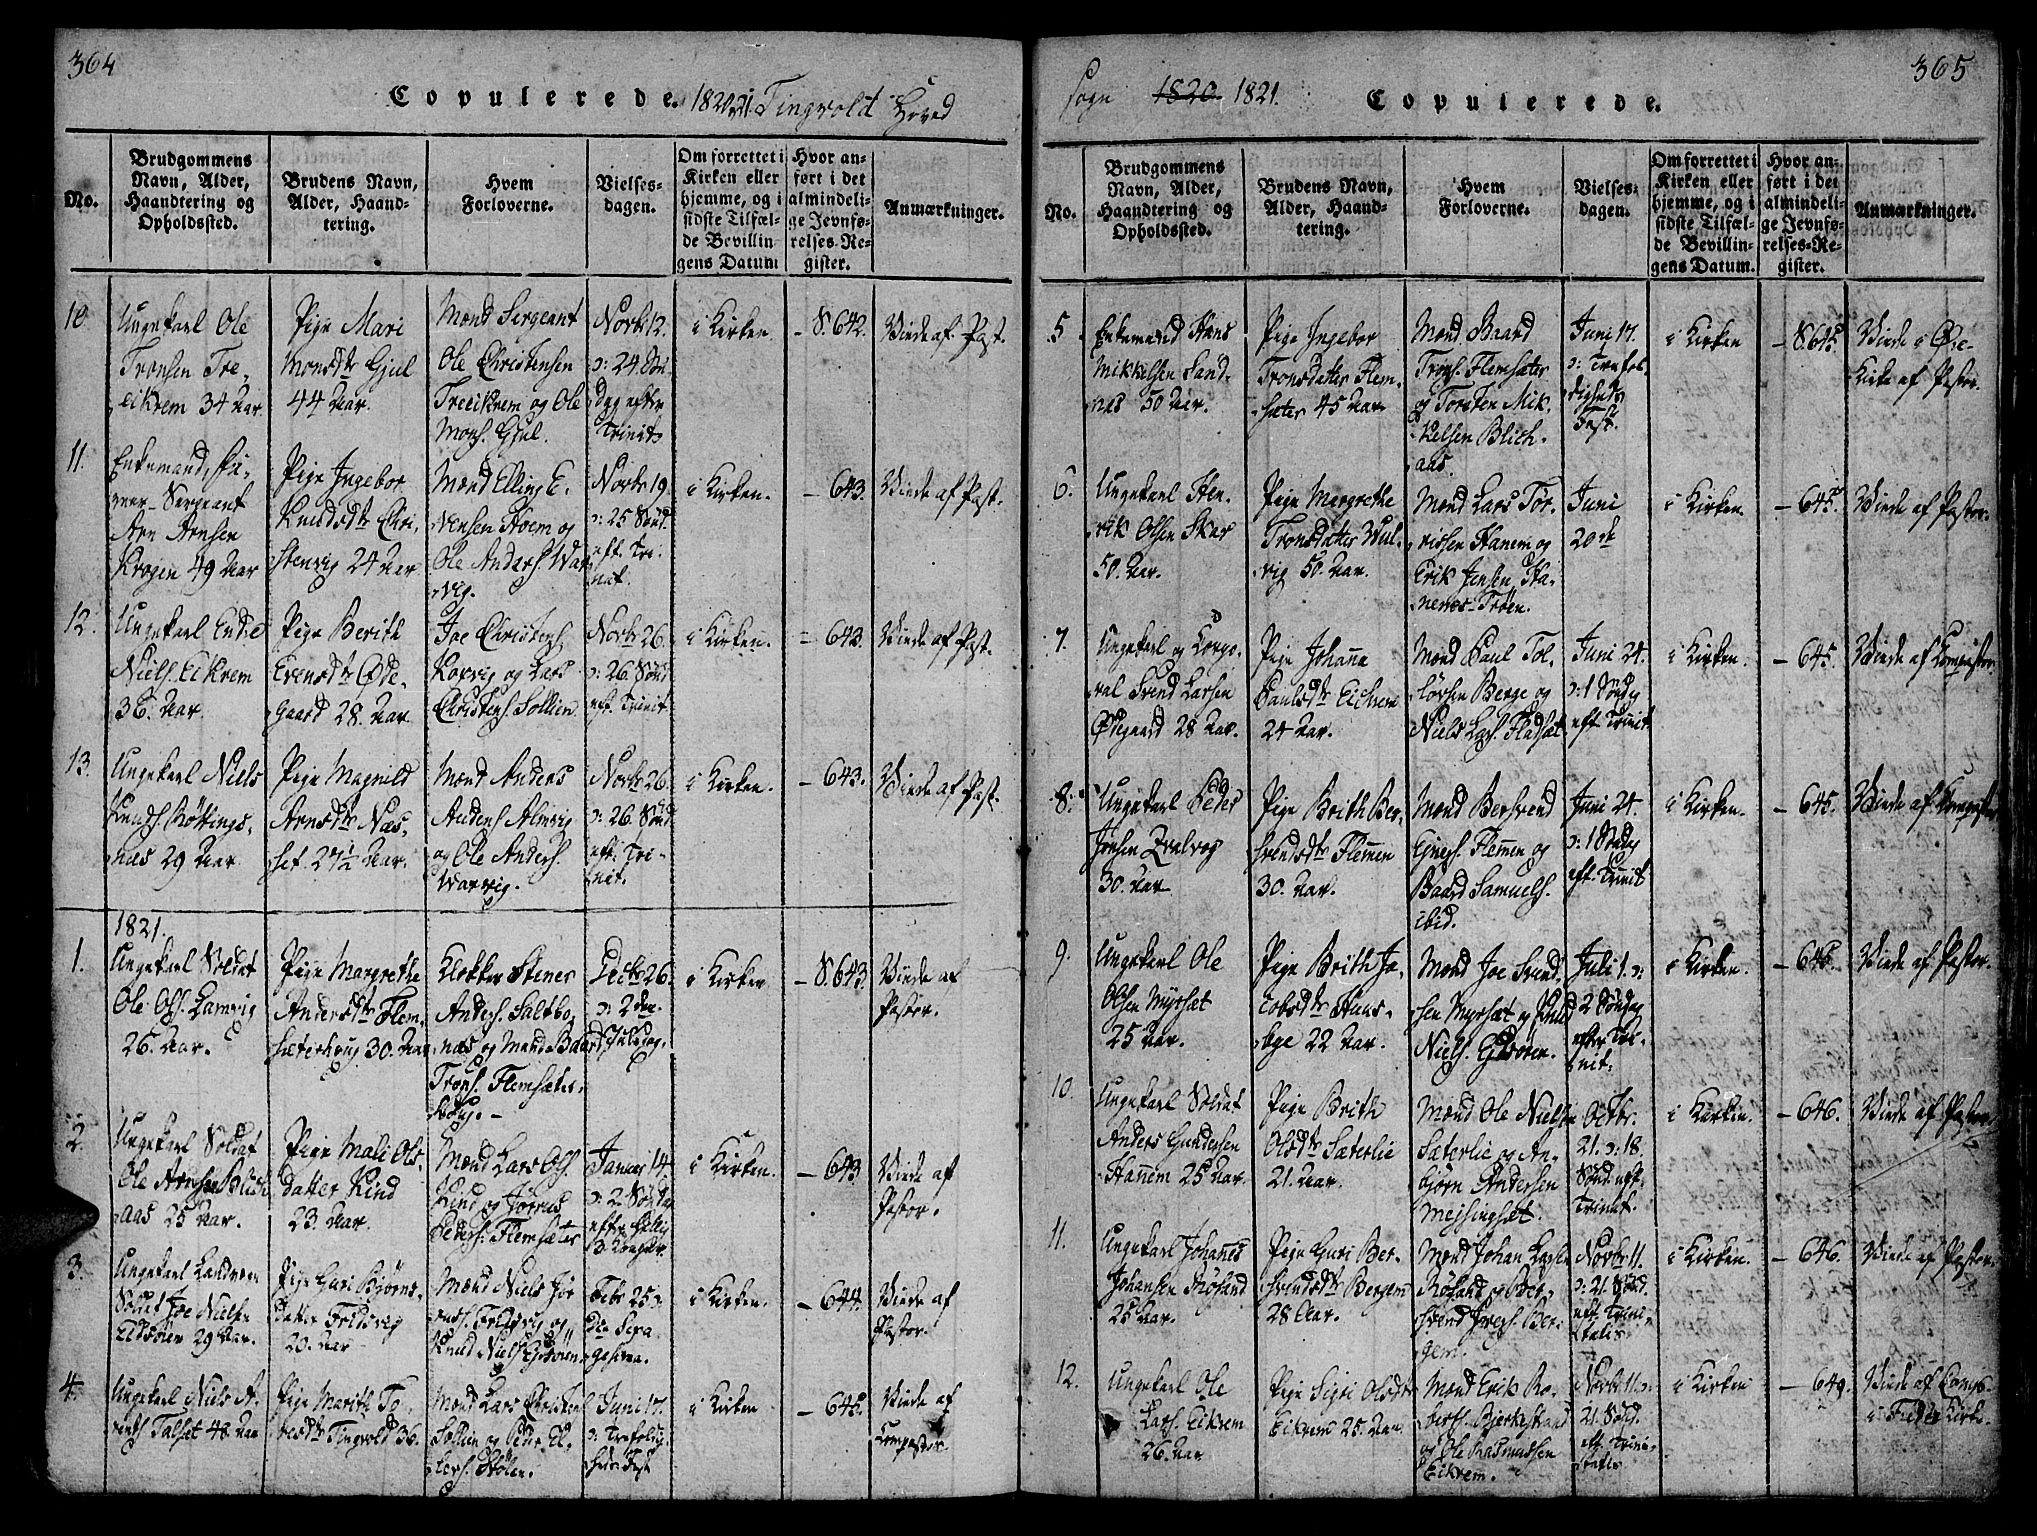 364
Copulerede 1820 og 21. Tingvold Hoved
No.
Brudgommens
Navn, Alder,
Haandtering og
Opholdssted.
Brudens Navn,
Alder, Haand-
tering.
Hvem
Forloverne.
Vielses-
dagen.
Om forrettet i
Kirken eller
hjemme, og i
sidste Tilfæl-
de Bevillin-
gens Datum
Hvor an-
ført i det
almindeli-
ge Jevnfø-
relses-Re-
gister.
Anmærkninger.
10
Ungekarl Ole
Tronsen Tre-
eikrem 34 Aar
Pige Mari
Monsdtr Gjul
44 Aar.
Mænd Sergeant
Ole Christensen
Treeikrem og Ole
Mons. Gjul.
Novbr 12.
ɔ: 24 Sön-
dag efter
Trinit
i Kirken.
- S. 642.
Viede af Past.
11.
Enkemand,
Sergeant
Arn Arnsen
Krogen 49 Aar
Pige Ingebor
Knudsdtr Chri-
stenvig 24 Aar
Mænd Elling E-
vensen Hoem og
Ole Anders. War-
vig.
Novbr 19.
ɔ: 25 Sönd.
eft. Tri-
nit.
i Kirken.
- 643.
Viede af Past.
12.
Ungekarl Endre
Niels. Eikrem
36. Aar.
Pige Berith
Evensdtr Øde-
gaard 28. Aar
Joe Christens.
Korvig og Lars
Christens. Sollien
Novbr 26.
ɔ: 26. Sönd
eft. Trinit.
i Kirken.
= 643.
Viede af Past.
13.
Ungekarl Niels
Knuds. Röttings-
næs 29 Aar
Pige Magnild
Arnsdtr Næs-
set. 27½ Aar.
Mænd Anders
Anders. Almvig
og Ole Anders.
Warvig.
Novbr 26.
ɔ: 26. Sönd
eft. Tri-
nit.
i Kirken.
- 643.
Viede af Past.
1821.
1.
Ungekarl Soldat
Ole Ols. Lamvig
26. Aar.
Pige Margrethe
Andersdtr Flem-
sæterhaug 30. Aar
Klokker Stener
Anders. Saltbo-
næs og Mand Baard
Trons. Flemsæter-
houg. -
Decbr 26.
ɔ: 2den
Juledag.
i Kirken
- S. 643.
Viede af
Pastor.
2
Ungekarl Soldat
Ole Arnsen Blich-
aas 25 Aar.
Pige Mali Ols-
datter Kind
23. Aar.
Mænd Lars Ols.
Kind og Jörnus
Peders. Flemsæter
Januar 14
ɔ: 2 Söndag
efter Hellig
3 Konger.
i Kirken.
- 643
Viede af
Pastor.
3.
Ungekarl Landværn
Soldat Joe Niels.
Eidsören 29. Aar.
Pige Guri Björns-
datter Fridsvig
20. Aar
Mænd Niels Jör-
nus. Fridsvig og
Knud Niels. Eidsören
Febr 25 ɔ:
Dom. Sexa-
gesima.
i Kirken.
- 644.
Viede af
Pastor.
4.
Ungekarl Niels A-
rents. Talset 48. Aar
Pige Marith To-
resdtr Tingvold 36.
Mænd Lars Christens.
Sollien og Peder El-
lers. Stölen.
Juni 17.
ɔ: Trefoldig-
heds Fest
i Kirken
- 645.
Viede af
Compastor.
365
Sogn 1820 1821.
Copulerede.
No.
Brudgommens
Navn, Alder,
Haandtering og
Opholdssted.
Brudens Navn,
Alder, Haand-
tering.
Hvem
Forloverne.
Vielses-
dagen.
Om forrettet i
Kirken eller
hjemme, og i
sidste Tilfæl-
de Bevillin-
gens Datum.
Hvor an-
ført i det
almindeli-
ge Jevnfø-
relses-Re-
gister.
Anmærkninger.
5.
Enkemand Hans
Mikkelsen Sand-
næs 50 Aar.
Pige Ingebor
Tronsdatter Flem-
sæter 45 Aar
Mænd Baard
Trons. Flemsæter
og Torsten Mik-
kelsen Blich-
aas.
Juni 17.
ɔ: Trefol-
digheds
Fest.
i Kirken
- S 645.
Viede i Øre
Kirke af Pastor.
6.
Ungekarl Hen-
rik Olsen Skar
50. Aar.
Pige Margrethe
Tronsdatter Wul-
vig 50. Aar.
Mænd Lars Tor-
rissen Hanem og
Erik Jensen, Ha-
nemes-Tröen.
Juni
20de
i Kirken.
- 645.
Viede af Pastor.
7.
Ungekarl og Corpo-
ral Svend Larsen
Ødegaard 28 Aar.
Pige Johanne
Paulsdtr Eichrem
24 Aar.
Mænd Paul Tol-
lövsen Berge og
Niels Lars. Fladsæt
Juni 24.
ɔ: 1 Söndag
eft. Trinit.
i Kirken.
- 645.
Viede af Compastor
8.
Ungekarl Peder
Jonsen Qvalvog
30. Aar
Pige Brith Ber-
svendsdtr Flemmen
30. Aar.
Mænd Bersvend
Ingers. Flemmen og
Baard Samuels.
ibid.
Juni 24.
ɔ: 1 Söndag
eft. Trinit
i Kirken.
- 645.
Viede af Compastor
9.
Ungekarl Ole
Olsen Myrsæt
25 Aar.
Pige Brith Ja-
cobsdtr Hans-
bge 22 Aar.
Mænd Joe Svend-
sen Myrsæt og Knud
Niels. Eidsören.
Juli 1. ɔ:
2 Söndag
efter Tri-
nit.
i Kirken.
- 646.
Viede af Pastor.
10.
Ungekarl Soldat
Anders Gundersen
Hanem 25 Aar.
Pige Brith
Olsdtr Sæterlie
21. Aar.
Mænd Ole Nielsen
Sæterlie og An-
björn Andersen
Mejsingsæt.
Octbr.
21. ɔ: 18.
Sönd. eft.
Trinit.
i Kirken.
- 646.
Viede af Pastor
11.
Ungekarl Johannes
Johansen Röhand
25 Aar.
Pige Guri Ber-
svendsdtr Bergem
28 Aar.
Mænd Johan Larsen
Röhand og Ber-
svend Ingers. Ber-
gem.
Novbr 11.
ɔ: 21. Sönd.
eft. Trini-
tatis.
i Kirken.
- 646.
Viede af Pastor.
12.
Ungekarl Ole
Lars. Eikrem
26. Aar
Pige Sigri Olsdtr
Eikrem 25. Aar.
Mænd Erik Ro-
bers. Bjerkestrand
og Ole Rasmussen
Eikrem.
Novbr 11. ɔ:
21. Sönd.
eft. Trini-
tatis
i Kirken
- 649.
Viede af Comps.
i Fredø Kirke.